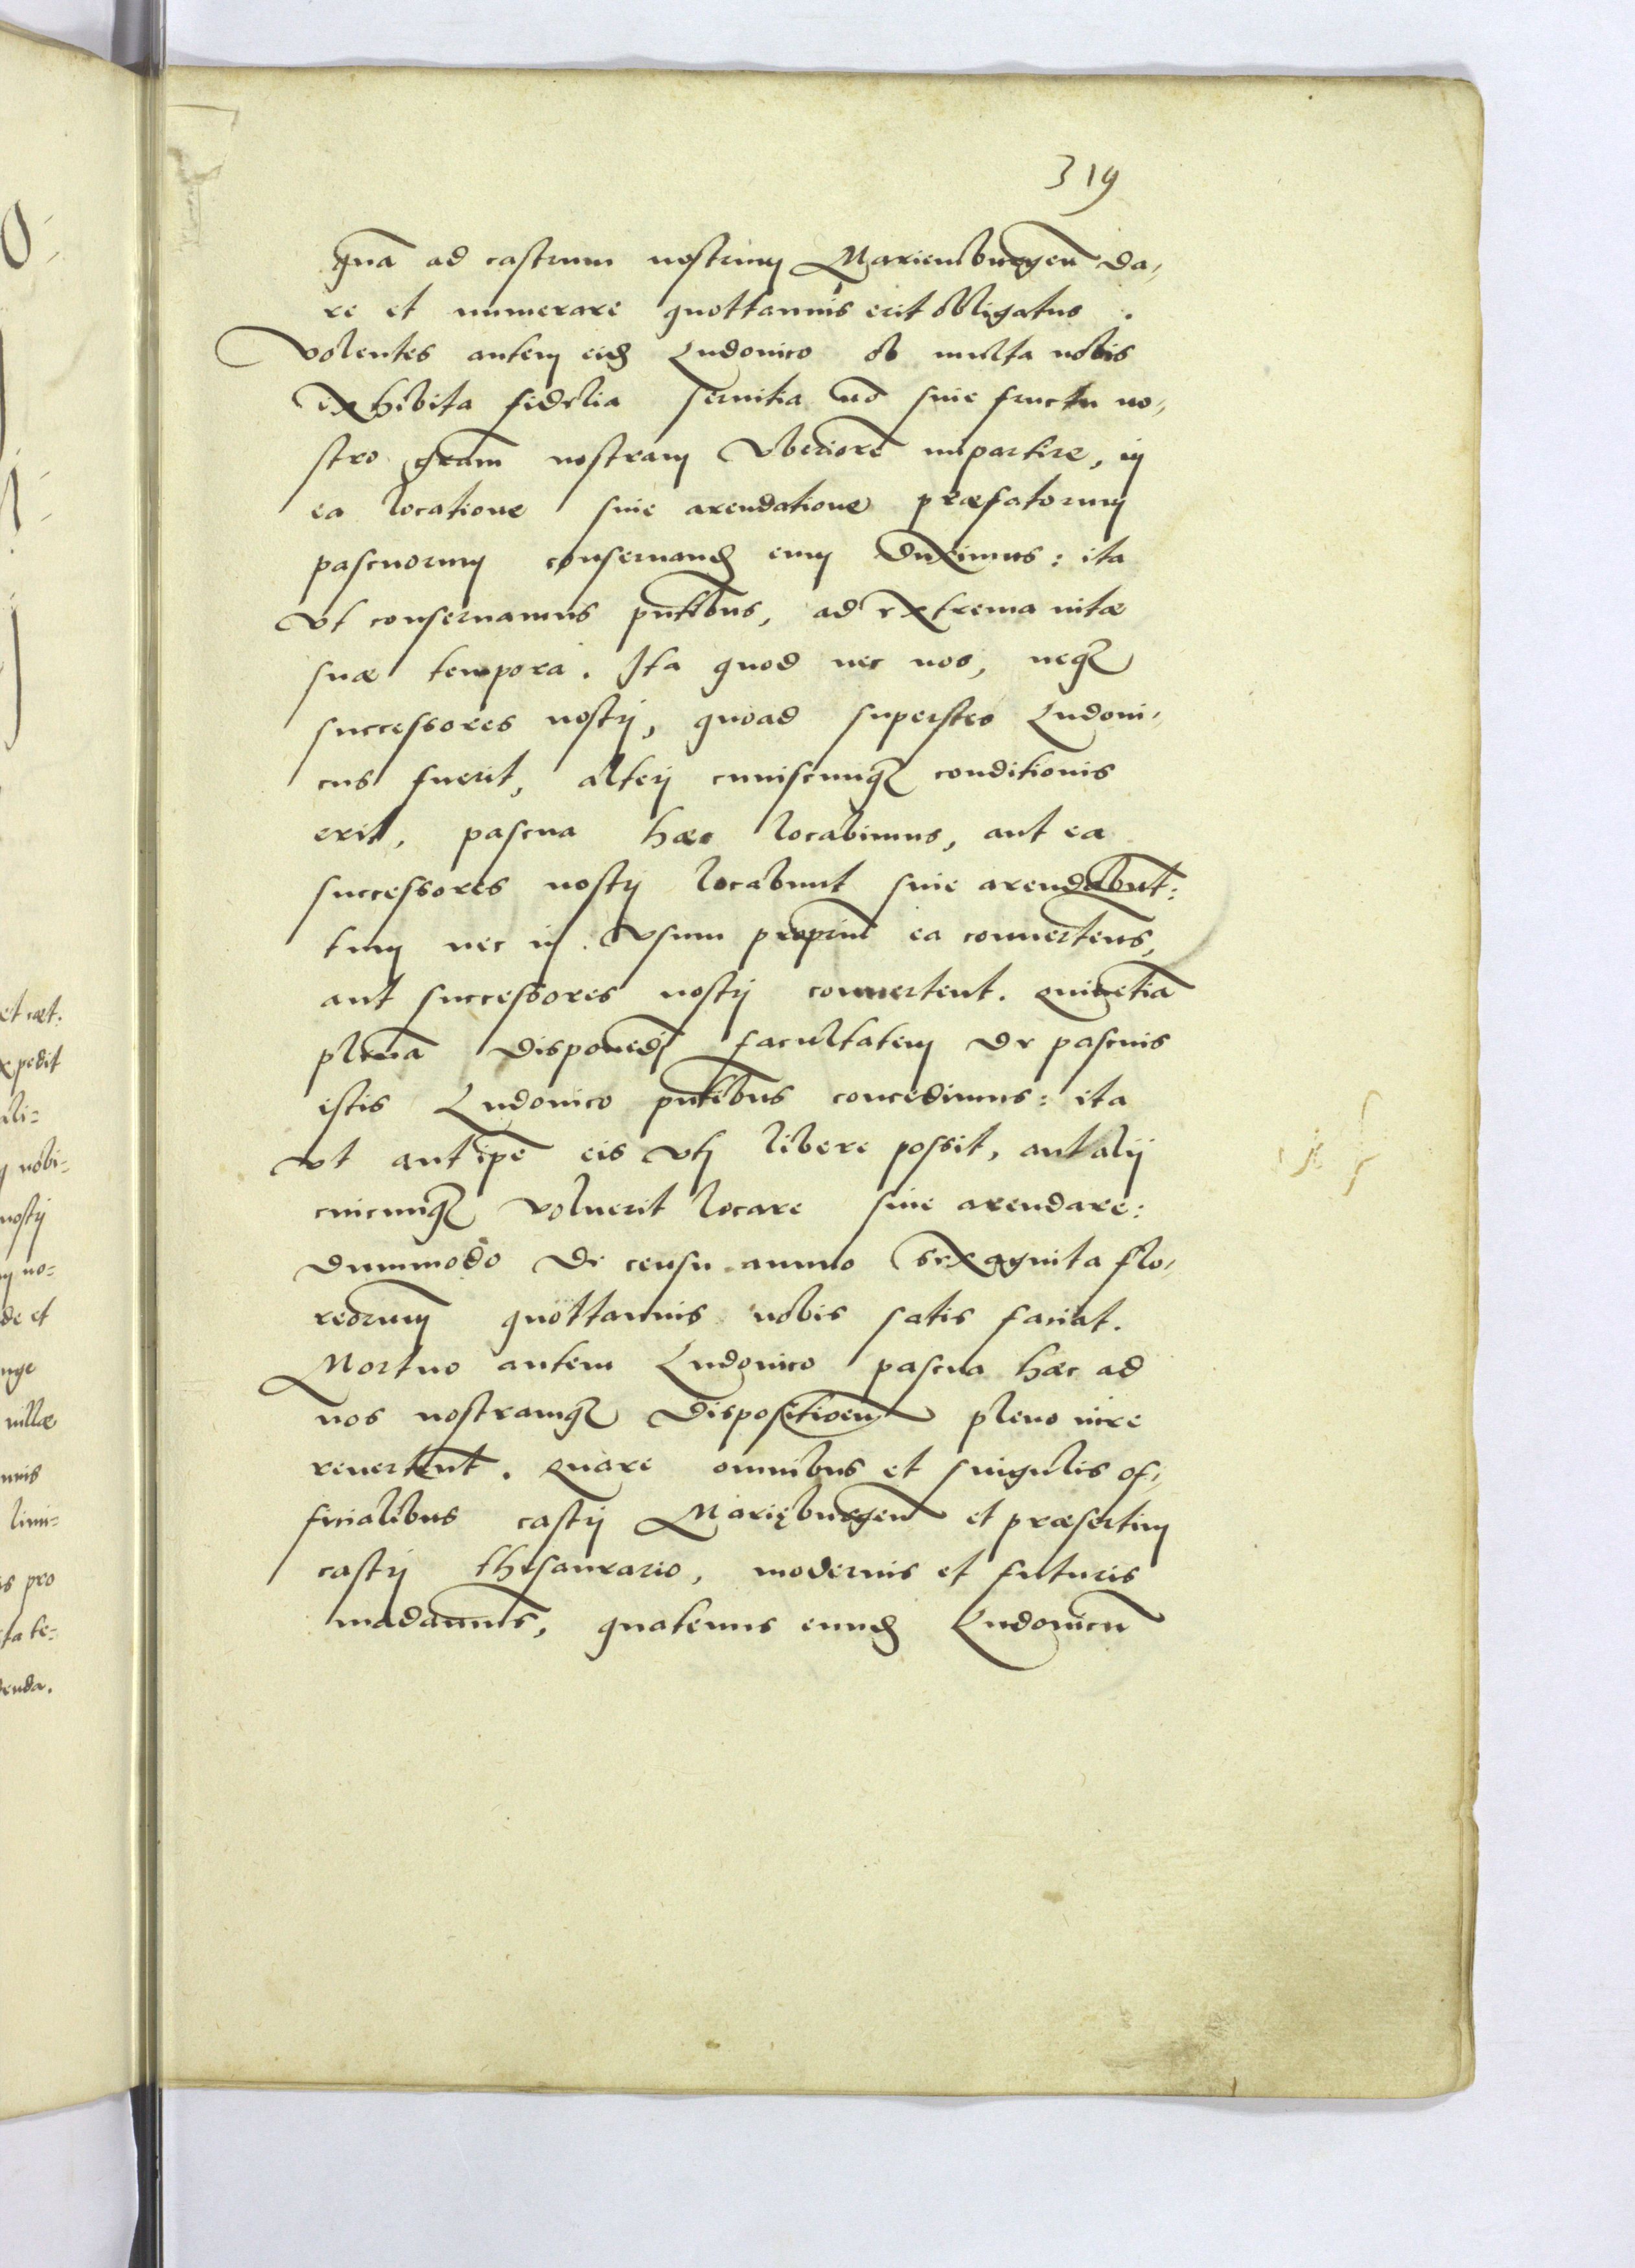 319
quā ad castrum nostrum Marienburgeñ da,
re et numerare quottannis erit obligatus.
Volentes autem eid Ludouico ob multa nobis
exhibita fidelia seruitia nō sine fructu no,
stro grām nostram vberiorē impartire, in
ea locatione siue arendatione præfatorum
pascuorum conseruand eum duximus: ita
vt conseruamus pntibus, ad extrema uitæ
suæ tempora. Ita quod nec nos, neq
successores nostri, quoad superstes Ludoui,
cus fuerit, alteri cuiuscunq conditionis
erit, pascua hæc locabimus, aut ea
successores nostri locabunt siue arendabūt:
tum nec in vsum propriū ea conuertem9,
aut successores nostri conuertent. quinetiā
plenā disponēdi facultatem de pascuis
istis Ludouico pntibus concedimus: ita
vt aut ipē eis vti libere possit, aut alij
cuicunq voluerit locare siue arendare:
dummodo de censu annuo sexaginta flo,
renorum quottannis nobis satis faciat.
Mortuo autem Ludouico pascua hæc ad
nos nostramq dispositioem pleno iure
reuertent. quare omnibus et singulis of,
ficialibus castri Mariēburgeñ et præsertim
castri thesaurario, modernis et futuris
mādamus, quatenus eund Ludouicū
et cæt.
xpedit
ali=
nobi=
nostri
no=
de et
nge
uillæ
nnis
limi=
s pro
ta te=
denda.